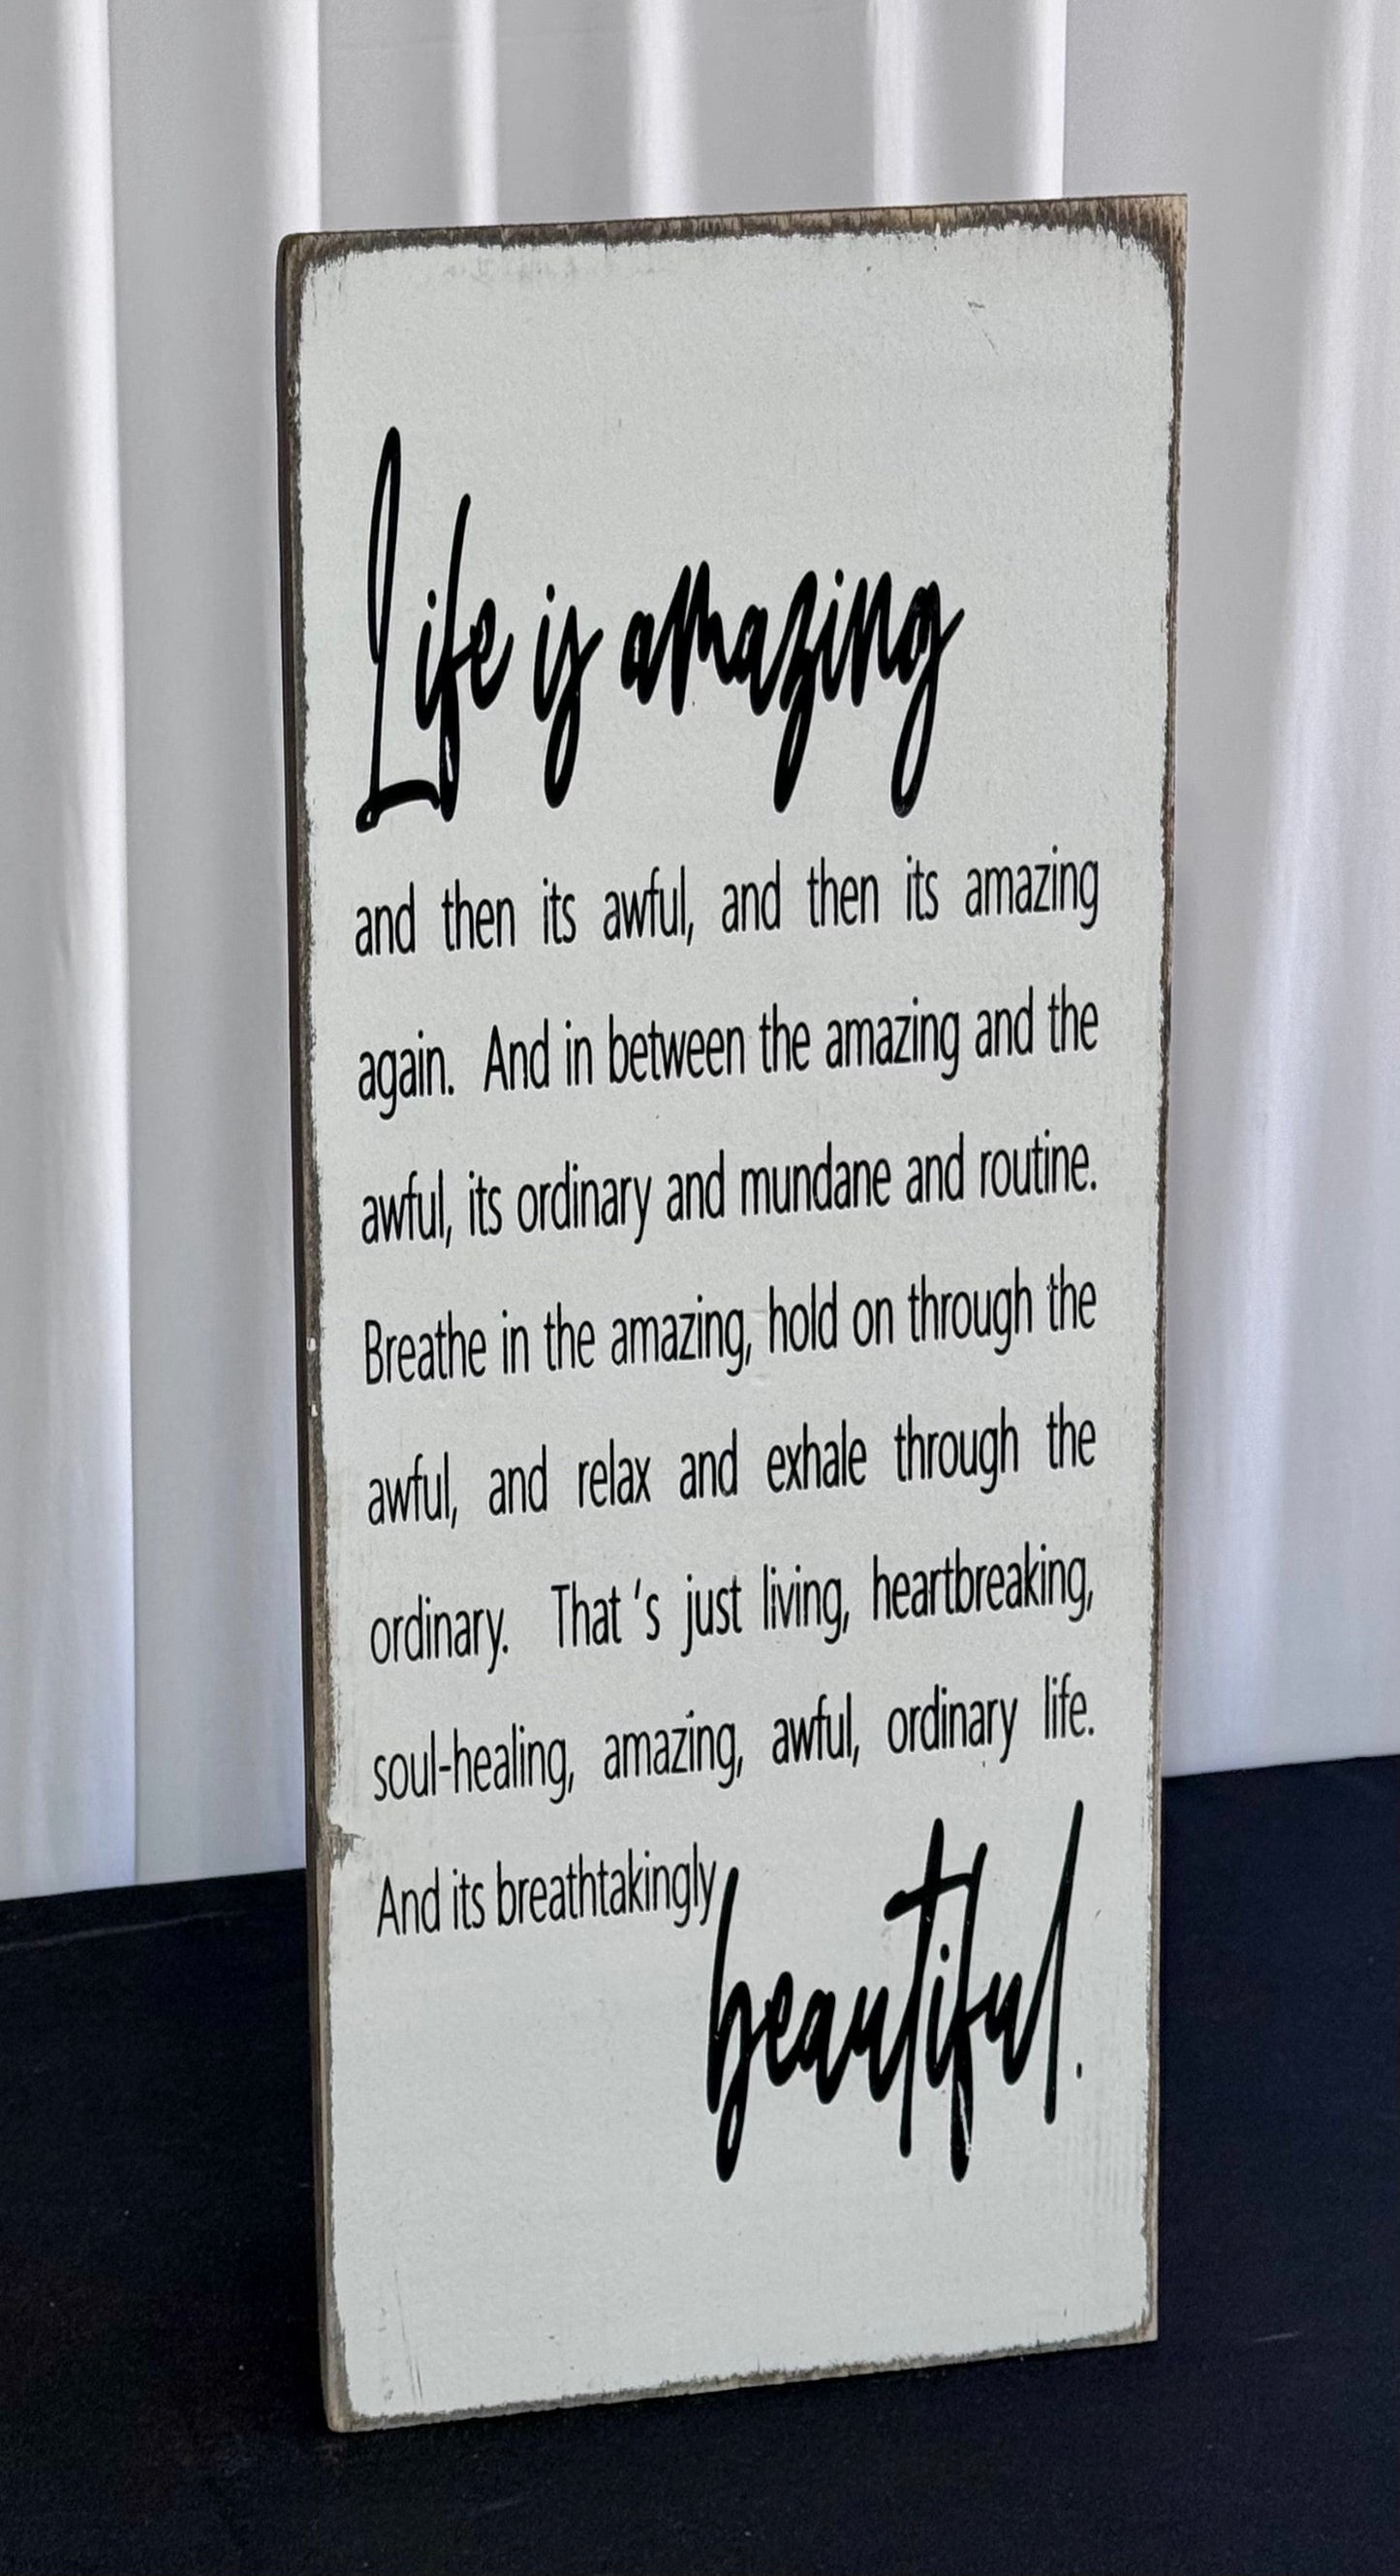 Life is amazing
and then its awful, and then its amazing
again. And in between the amazing and the
awful, its ordinary and mundane and routine.
Breathe in the amazing, hold on through the
awful, and relax and exhale through the
ordinary. That 's just living, heartbreaking,
soul-healing, amazing, awful, ordinary life.
And its breathtakingly
beautiful.